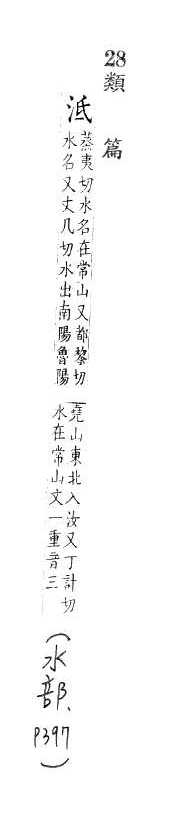 28
類篇
泜
蒸夷切水名在常山又都黎切
水名又丈几切水出南陽魯陽
堯山東北入汝又丁計切
水在常山文一重音三
(水部、P397)